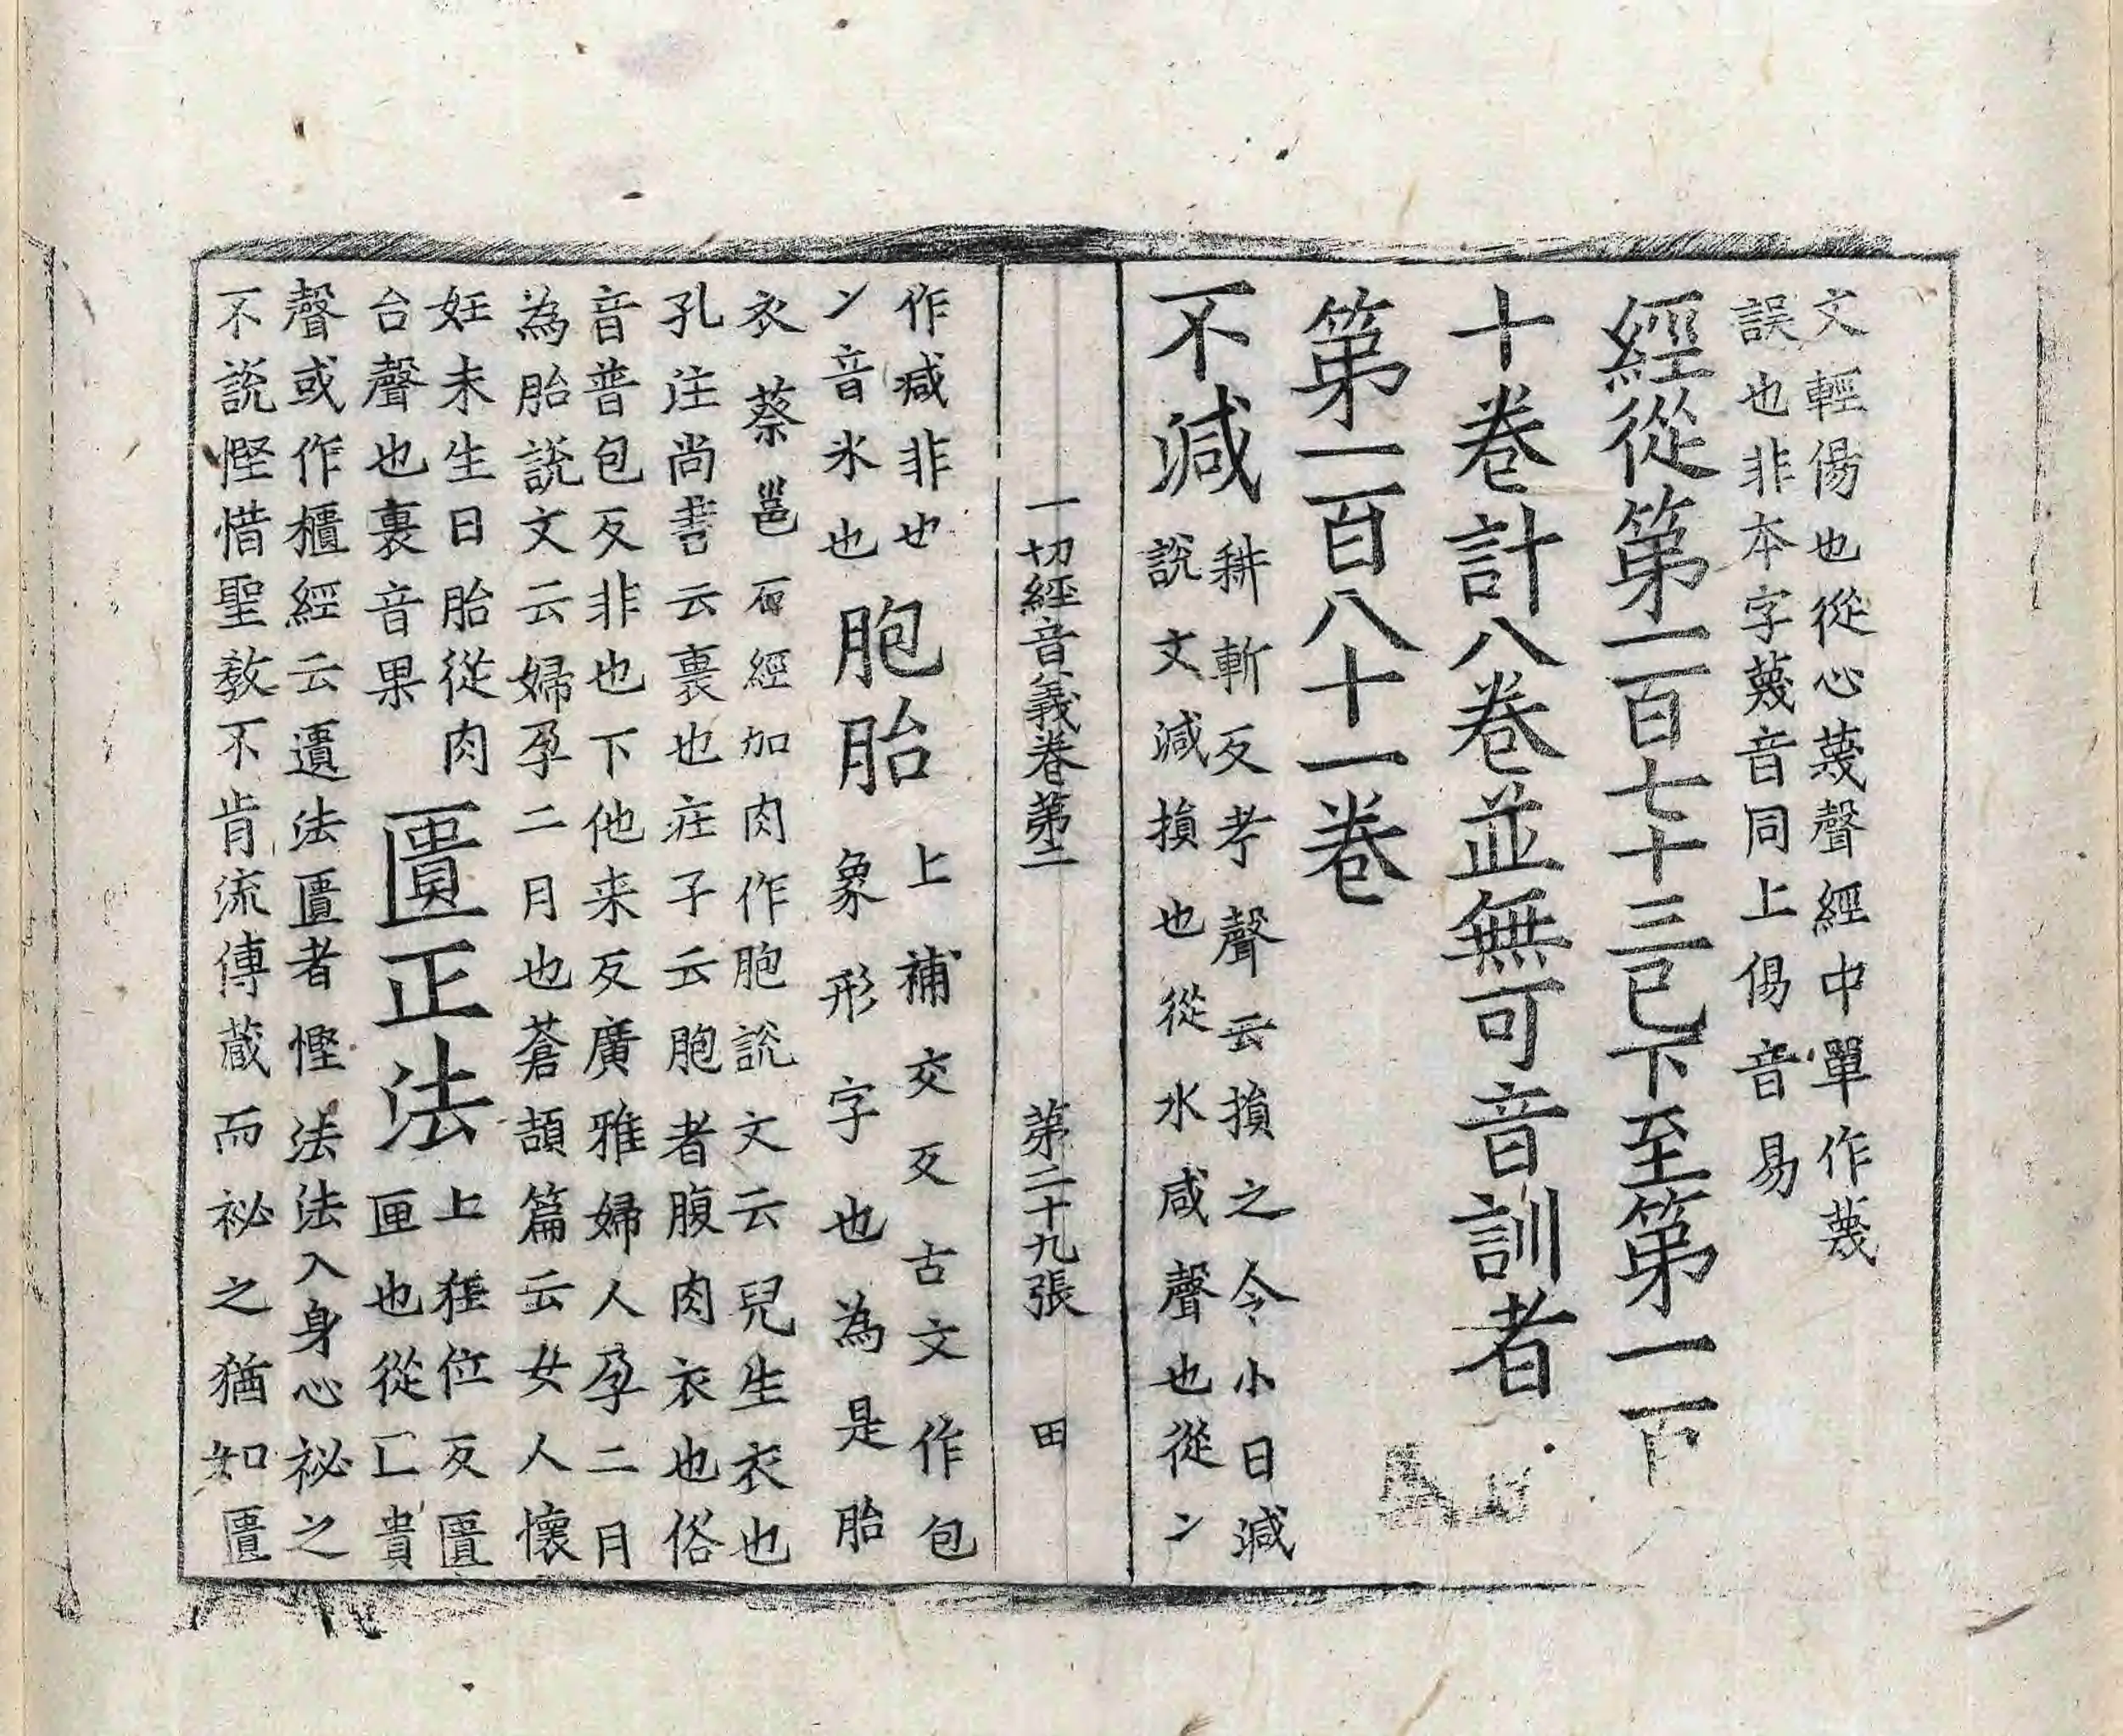 文輕傷也從心蔑聲經中單作蔑
誤也非本字蔑音同上傷音易
經從第一百七十三已下至第一百
十卷計八卷並無可音訓者
第一百八十一卷
不減
耕斬反考聲云損之令小曰減
說文減損也從水咸聲也從冫
一切經音義卷第二 第二十九張 田
作减非也
冫音氷也
胞胎
上補交反古文作包
象形字也為是胎
衣蔡邕石經加肉作胞說文云兒生衣也
孔注尚書云裹也莊子云胞者腹肉衣也俗
音普包反非也下他来反廣雅婦人孕二月
為胎說文云婦孕二月也蒼頡篇云女人懷
妊未生曰胎從肉
台聲也裹音果
匱正法
上狂位反匱
匣也從匚貴
聲或作櫃經云遺法匱者慳法法入身心祕之
不說慳惜聖教不肯流傳蔵而祕之猶如匱